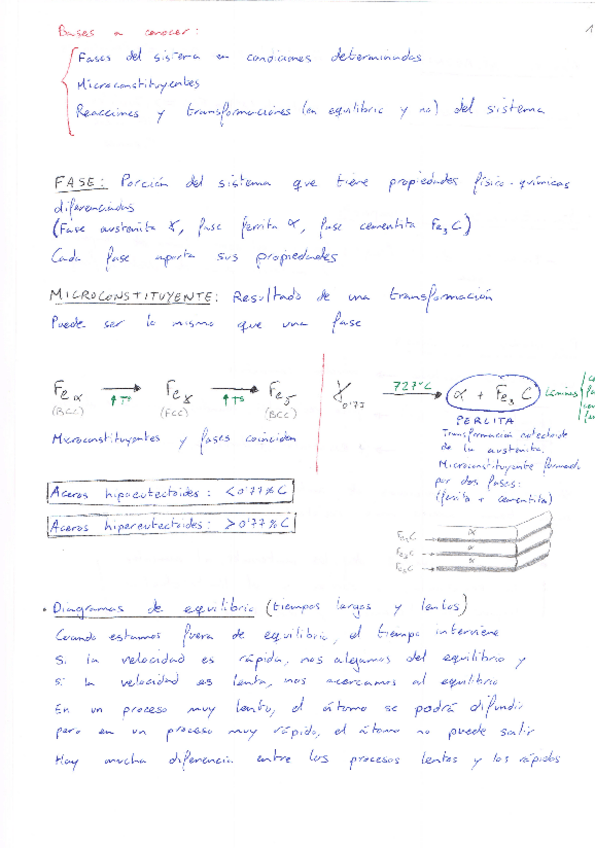 Bases a conocer:
1
Fases del sistema en condiciones determinadas
Microconstituyentes
Reacciones y transformaciones (en equilibrio y no) del sistema
FASE: Porción del sistema que tiene propiedades físico-químicas
diferenciadas
(Fase austenita γ, fase ferrita α, fase cementita Fe3C)
Cada fase aporta sus propiedades
MICROCONSTITUYENTE: Resultado de una transformación
Puede ser lo mismo que una fase
Feα → Feγ → Feδ
↑Tª ↑Tª
(BCC) (FCC) (BCC)
Microconstituyentes y fases coinciden
γ0'77 727ºC → α + Fe3C Láminas
PERLITA
Transformación eutectoide
de la austenita.
Microconstituyente formado
por dos fases:
(ferrita + cementita)
Aceros hipoeutectoides: <0'77%C
Aceros hipereutectoides: >0'77%C
Fe3C → α
Fe3C →
Fe3C →
• Diagramas de equilibrio (tiempos largos y lentos)
Cuando estamos fuera de equilibrio, el tiempo interviene
Si la velocidad es rápida, nos alejamos del equilibrio y
si la velocidad es lenta, nos acercamos al equilibrio
En un proceso muy lento, el átomo se podrá difundir
pero en un proceso muy rápido, el átomo no puede salir
Hay mucha diferencia entre los procesos lentos y los rápidos